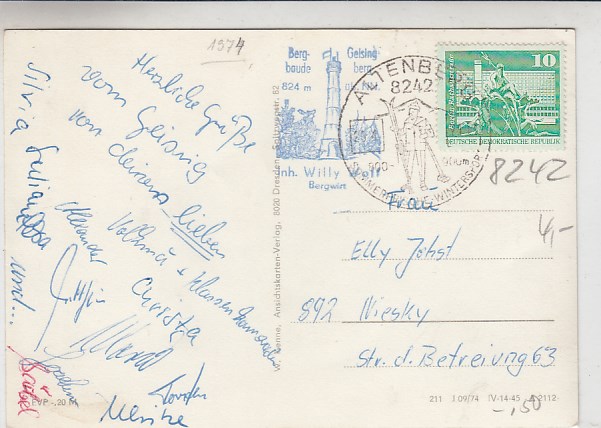 1974
Herzliche Grüße
vom Geising
von deinen lieben
Volkmar + Klassenkameraden
Christa
Alexander
Ulrike
Bärbel
EVP -,20 M
V. Wenne, Ansichtskarten-Verlag, 8020 Dresden
Berg-
baude
824 m
Geising-
berg
Inh. Willy Wolf
Bergwirt
ALTENBERG
8242
SOMMERFRISCHE-WINTERSPORT
10
DEUTSCHE DEMOKRATISCHE REPUBLIK
8242
4,-
Frau
Elly Jobst
892 Niesky
Str. d. Befreiung 63
211 J 09/74 IV-14-45 A 2112
-,50